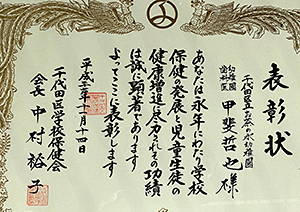 表彰状
千代田区立お茶の水幼稚園
幼稚園
歯科医 甲斐哲之様
あなたは永年にわたり学校
保健の発展と児童生徒の
健康増進に尽力されその功績
は誠に顕著であります
よってここに表彰します
平成二年十一月十四日
千代田区学校保健会
会長 中村裕子